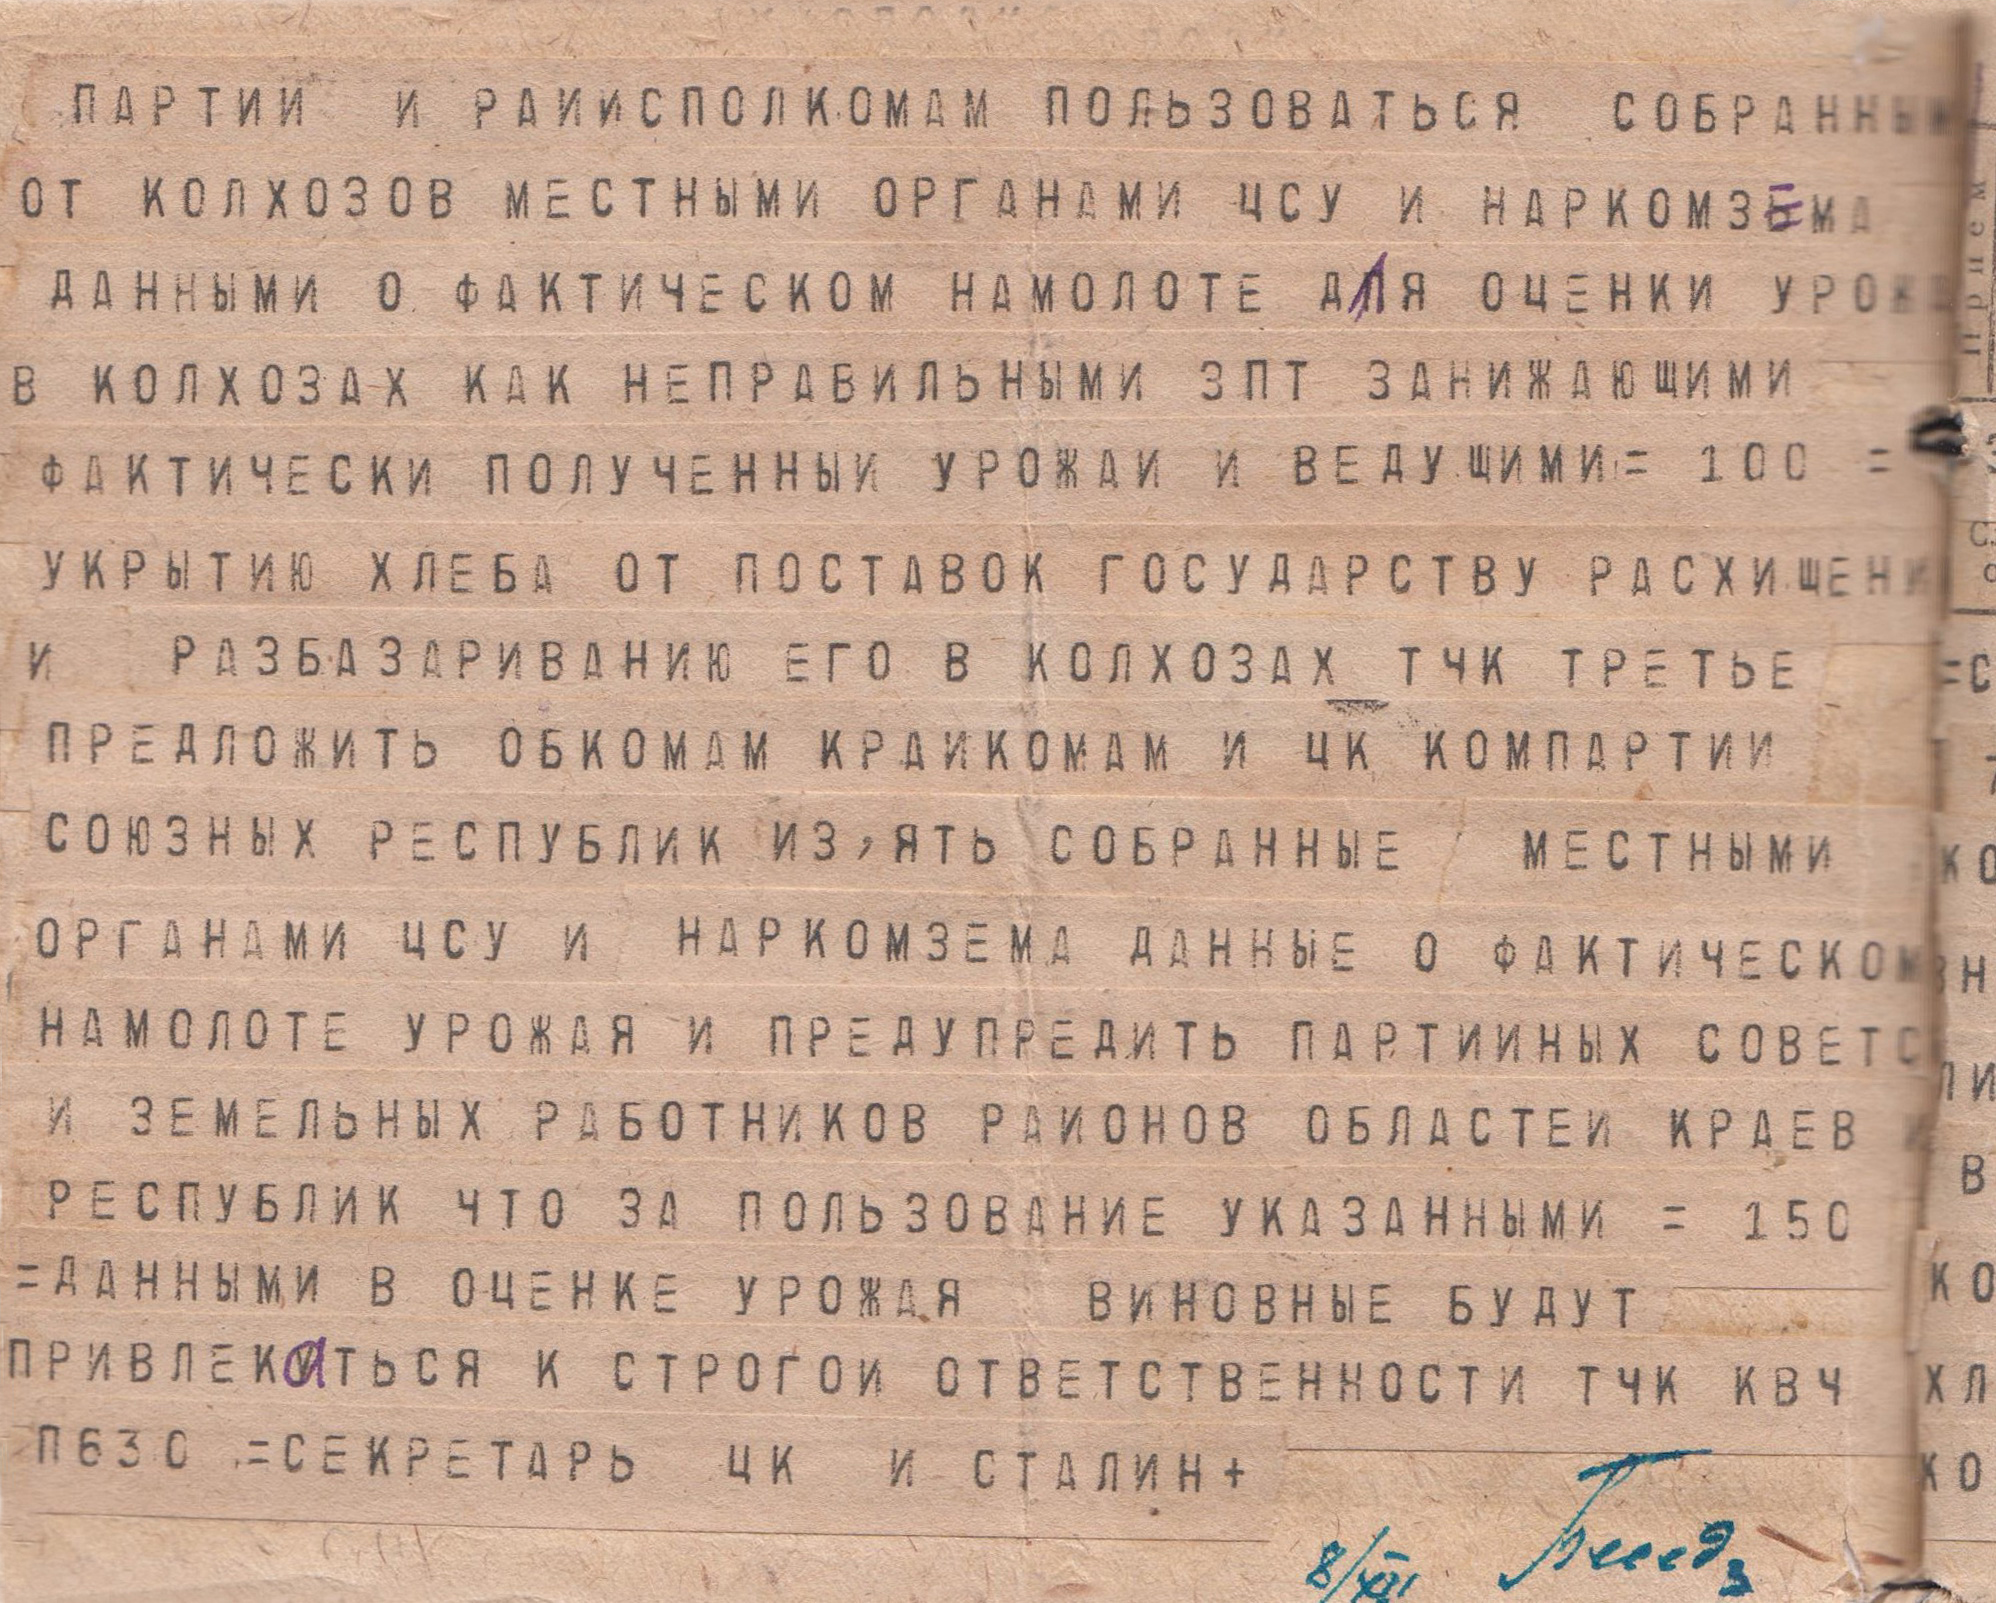 ПАРТИИ И РАИИСПОЛКОМАМ ПОЛЬЗОВАТЬСЯ СОБРАННЫМ
ОТ КОЛХОЗОВ МЕСТНЫМИ ОРГАНАМИ ЦСУ И НАРКОМЗЕМА
ДАННЫМИ О ФАКТИЧЕСКОМ НАМОЛОТЕ ДЛЯ ОЦЕНКИ УРОЖА
В КОЛХОЗАХ КАК НЕПРАВИЛЬНЫМИ ЗПТ ЗАНИЖАЮЩИМИ
ФАКТИЧЕСКИ ПОЛУЧЕННЫИ УРОЖАИ И ВЕДУЩИМИ= 100 =
УКРЫТИЮ ХЛЕБА ОТ ПОСТАВОК ГОСУДАРСТВУ РАСХИЩЕНИ
И РАЗБАЗАРИВАНИЮ ЕГО В КОЛХОЗАХ ТЧК ТРЕТЬЕ
ПРЕДЛОЖИТЬ ОБКОМАМ КРАИКОМАМ И ЦК КОМПАРТИИ
СОЮЗНЫХ РЕСПУБЛИК ИЗ,ЯТЬ СОБРАННЫЕ МЕСТНЫМИ
ОРГАНАМИ ЦСУ И НАРКОМЗЕМА ДАННЫЕ О ФАКТИЧЕСКОМ
НАМОЛОТЕ УРОЖАЯ И ПРЕДУПРЕДИТЬ ПАРТИИНЫХ СОВЕТС
И ЗЕМЕЛЬНЫХ РАБОТНИКОВ РАИОНОВ ОБЛАСТЕИ КРАЕВ И
РЕСПУБЛИК ЧТО ЗА ПОЛЬЗОВАНИЕ УКАЗАННЫМИ = 150
=ДАННЫМИ В ОЦЕНКЕ УРОЖАЯ ВИНОВНЫЕ БУДУТ
ПРИВЛЕКАТЬСЯ К СТРОГОИ ОТВЕТСТВЕННОСТИ ТЧК КВЧ
П630 =СЕКРЕТАРЬ ЦК И СТАЛИН+
8/XII